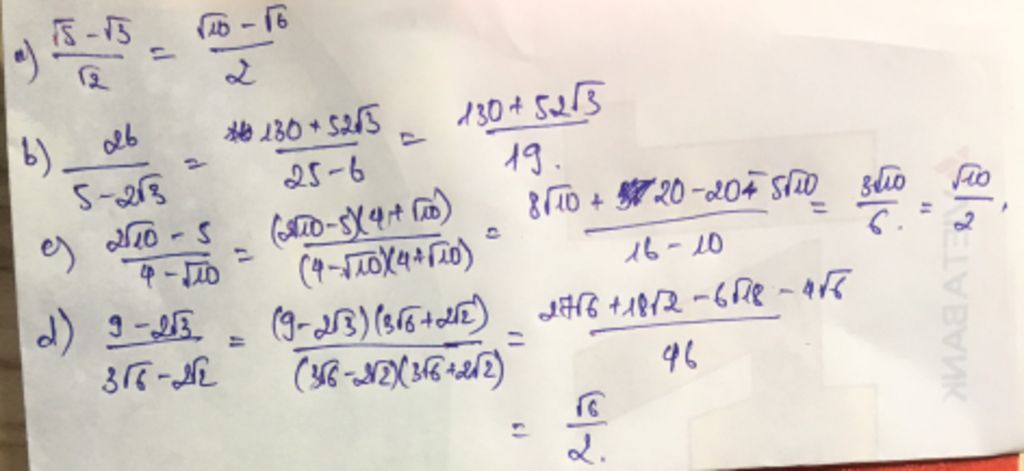 a) (√5 - √3)/√2 = (√10 - √6)/2
b) 26/(5 - 2√3) = (130 + 52√3)/(25 - 6) = (130 + 52√3)/19.
c) (2√10 - 5)/(4 - √10) = ((2√10 - 5)(4 + √10))/((4 - √10)(4 + √10)) = (8√10 + 20 - 20 - 5√10)/(16 - 10) = 3√10/6. = √10/2.
d) (9 - 2√3)/(3√6 - 2√2) = ((9 - 2√3)(3√6 + 2√2))/((3√6 - 2√2)(3√6 + 2√2)) = (27√6 + 18√2 - 6√18 - 4√6)/46
= √6/2.
VIETABANK